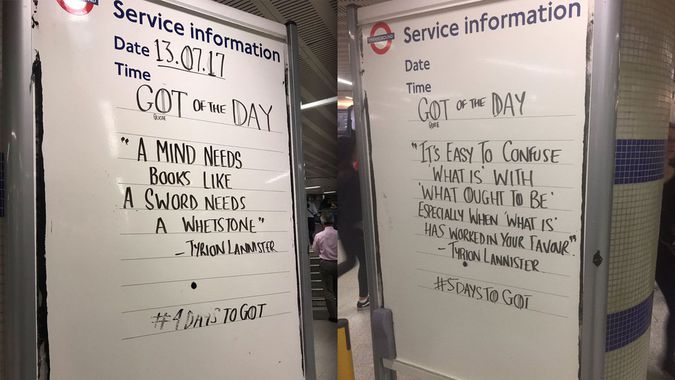 Service information
Date 13.07.17
Time
GOT OF THE DAY
"A MIND NEEDS
BOOKS LIKE
A SWORD NEEDS
A WHETSTONE"
- TYRION LANNISTER
#4DAYS TO GOT
UNDERGROUND
Service information
Date
Time
GOT OF THE DAY
"IT'S EASY TO CONFUSE
'WHAT IS' WITH
'WHAT OUGHT TO BE'
ESPECIALLY WHEN 'WHAT IS'
HAS WORKED IN YOUR FAVOUR"
- TYRION LANNISTER
#5DAYS TO GOT